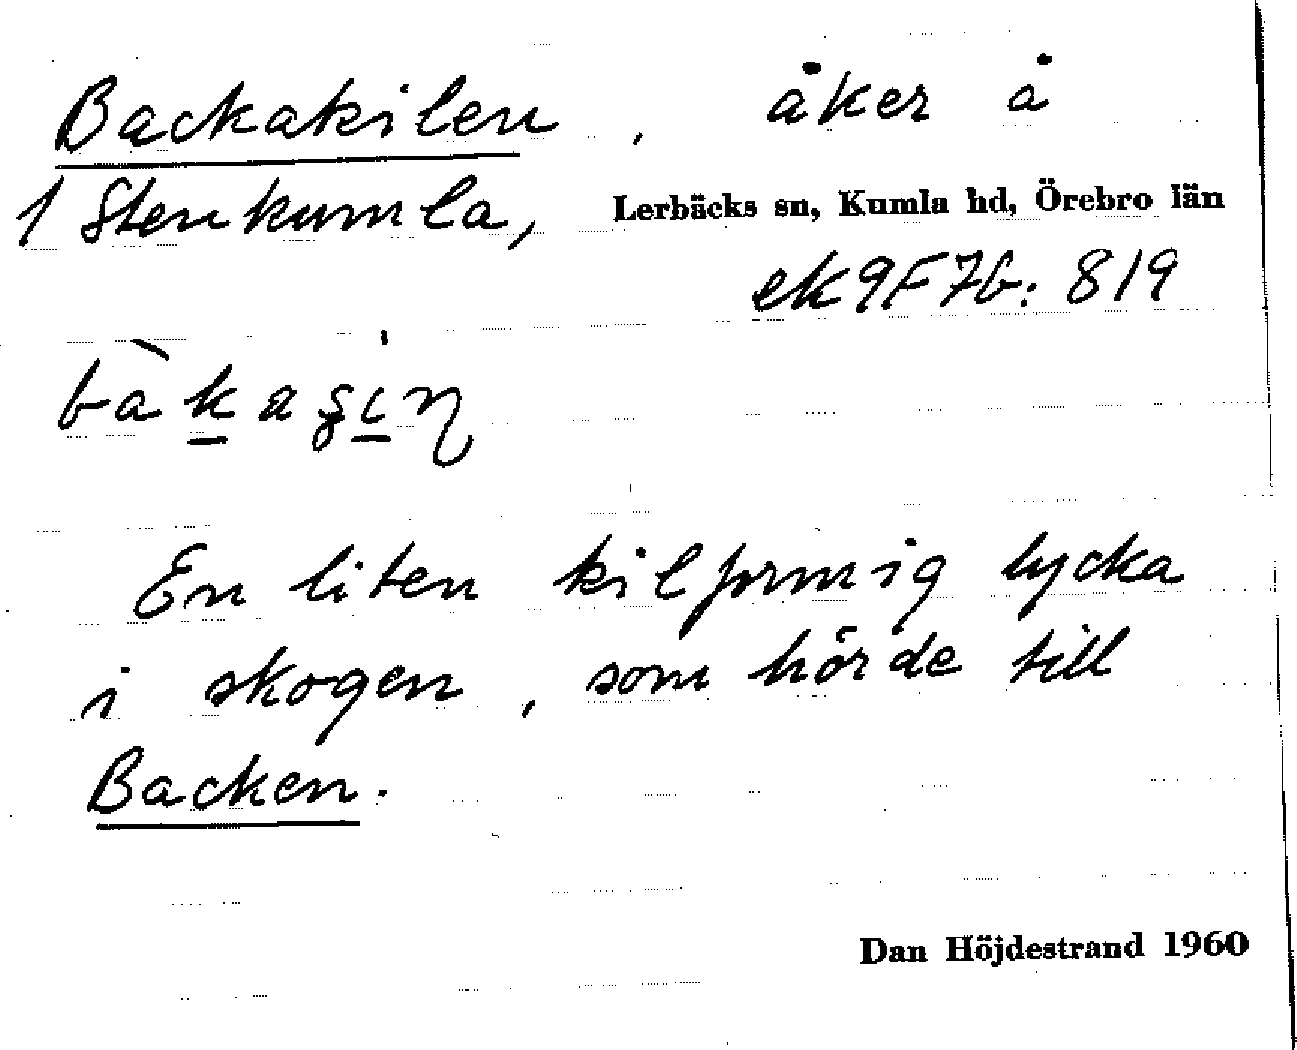 Backakilen, åker å
1 Stenkumla, Lerbäcks sn, Kumla hd, Örebro län
ek 9F7b: 819
En liten kilformig lycka
i skogen, som hörde till
Backen.
Dan Höjdestrand 1960